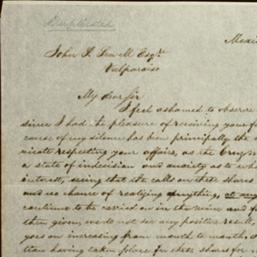 Duplicated
Mexi
John S. Sewell Esqr.
Valparaiso
My dear Sir
I feel ashamed to observe
since I had the pleasure of receiving your f
cause of my silence has been principally the
nicate respecting your affairs, as the
a state of indecision and anxiety as to wh
interest, seeing that the calls on these shares
and no chance of realizing anything,
continue to be carried on in the mine and f
then given, we do not see any positive result
goes on increasing from month to month
than having taken place for these shares for